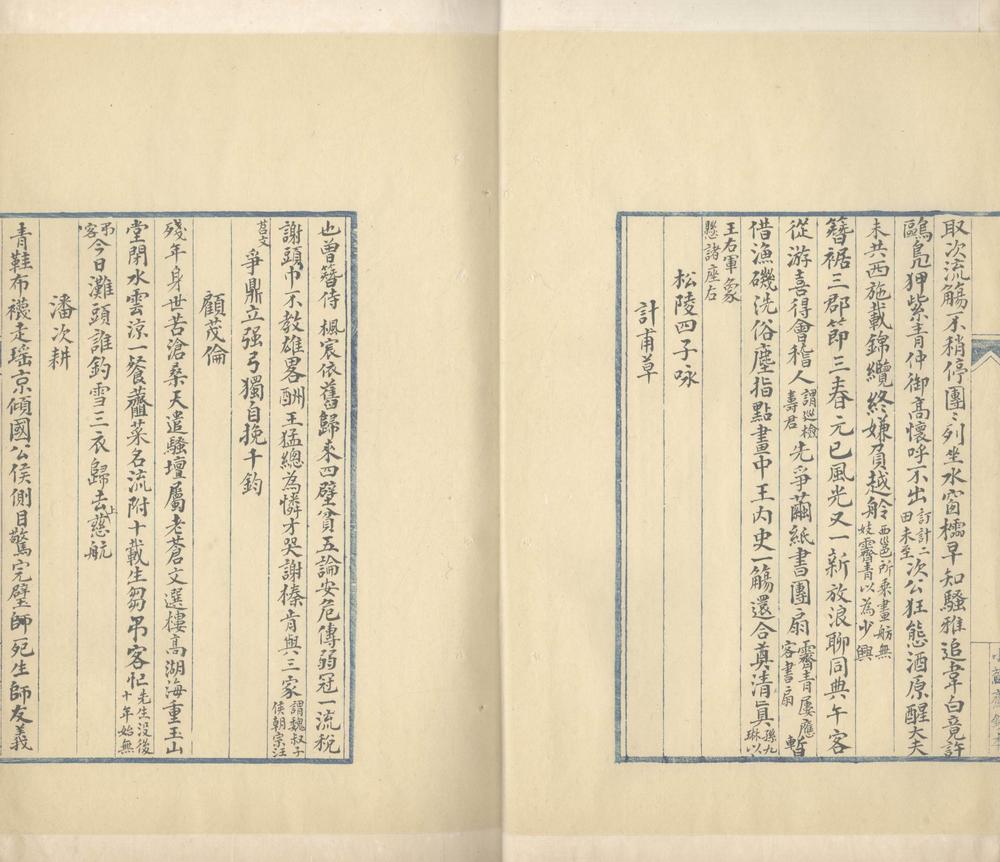 取次流觴不稍停團〻列坐水窗櫺早知騷雅追韋白竟許
鷗鳧狎紫青仲御高懷呼不出訂計二田未至次公狂態酒原醒大夫
未共西施載錦纜終嫌負越舲西邑所乘畫舫無妓霽青以為少興
簪裾三郡節三春元巳風光又一新放浪聊同典午客
從游喜得會稽人謂巡檢壽君先爭繭紙書團扇霽青屢應客書扇暫
借漁磯洗俗塵指點畫中王內史一觴還合奠清真孫九琳以
王右軍象懸諸座右
松陵四子咏
計甫草
也曾簪侍楓宸依舊歸來四壁貧五論安危傳弱冠一流稅
謝頭巾不教雄畧酬王猛總為憐才哭謝榛肯與三家謂魏叔子侯朝宗汪
苕文爭鼎立强弓獨自挽千鈞
顧茂倫
殘年身世苦滄桑天遣騷壇屬老蒼文選樓高湖海重玉山
堂閉水雲涼一餐虀菜名流附十載生芻弔客忙先生没後十年始無
弔客今日灘頭誰釣雪三衣歸去上慈航
潘次耕
青鞋布襪走瑶京傾國公侯側目驚完璧師死生師友義